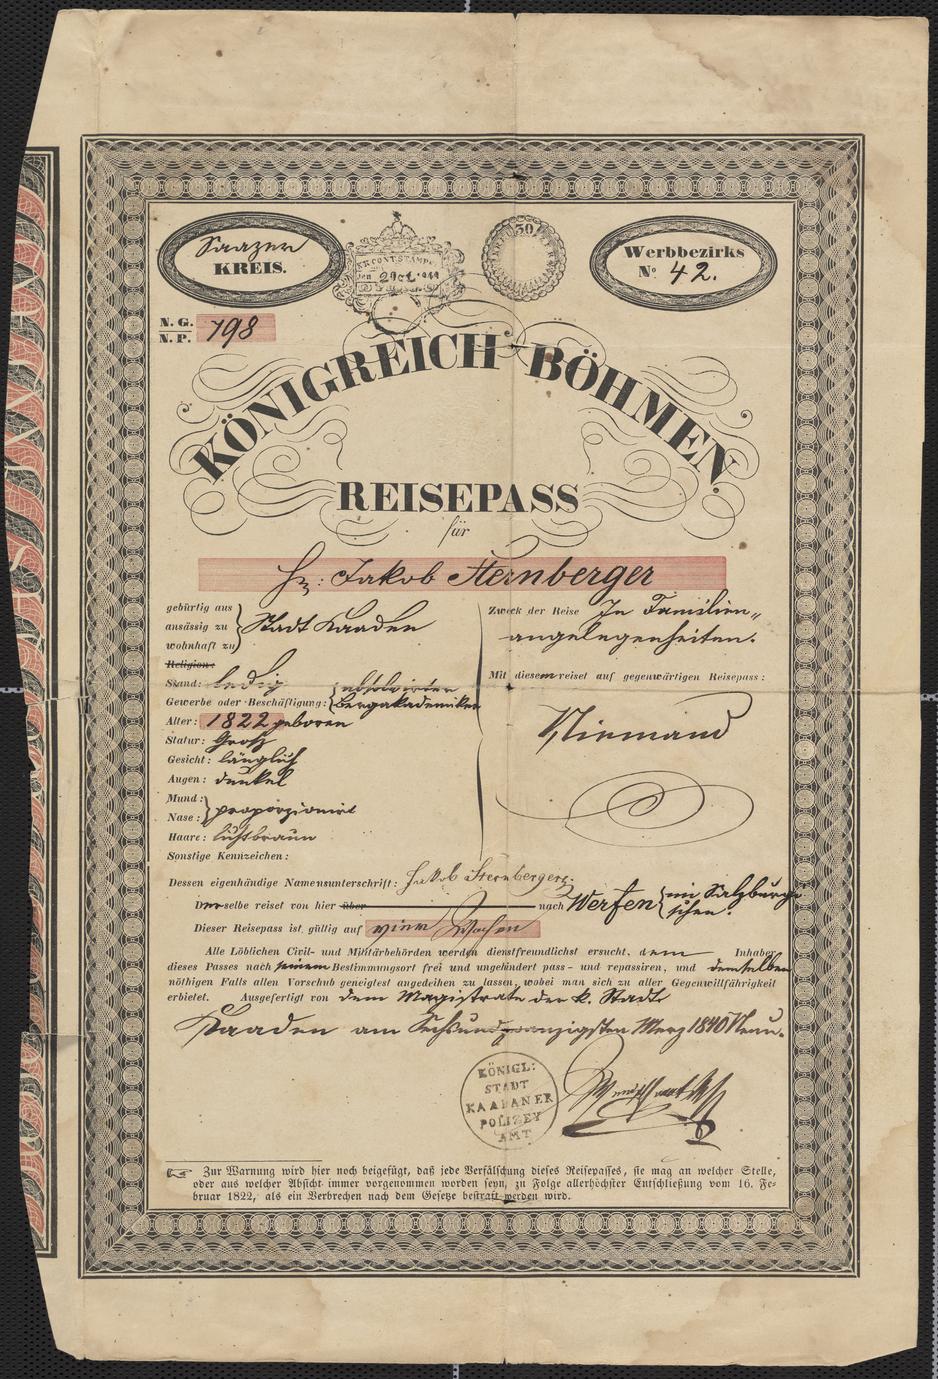 Saazer
KREIS.
30
Werbbezirks
Nº 42.
N. G.
N. P. 798
KÖNIGREICH BÖHMEN.
REISEPASS
für
Hr: Jakob Sternberger
gebürtig aus
ansässig zu Stadt Kaaden
wohnhaft zu
Religion:
Stand: ledig
Gewerbe oder Beschäftigung: absolvirter Bergakademiker
Alter: 1822 geboren
Statur: Groß
Gesicht: länglich
Augen: dunkel
Mund:
Nase: proporzionirt
Haare: lichtbraun
Sonstige Kennzeichen:
Zweck der Reise In Familien„
angelegenheiten.
Mit diesem reiset auf gegenwärtigen Reisepass:
Niemand
Dessen eigenhändige Namensunterschrift: Jakob Sternberger
Derselbe reiset von hier über nach Werfen im Salzburgi
schen.
Dieser Reisepass ist gültig auf vier Wochen
Alle Löblichen Civil- und Militärbehörden werden dienstfreundlichst ersucht, dem Inhaber
dieses Passes nach seinem Bestimmungsort frei und ungehindert pass- und repassiren, und demselben
nöthigen Falls allen Vorschub geneigtest angedeihen zu lassen, wobei man sich zu aller Gegenwillfährigkeit
erbietet. Ausgefertigt von dem Magistrate der k. Stadt
Kaaden am Sechsundzwanzigsten Merz 1840 Neun.
KÖNIGL:
STADT
KAADANER
POLIZEY
AMT
Zur Warnung wird hier noch beigefügt, daß jede Verfälschung dieses Reisepasses, sie mag an welcher Stelle,
oder aus welcher Absicht immer vorgenommen worden seyn, zu Folge allerhöchster Entschließung vom 16. Fe-
bruar 1822, als ein Verbrechen nach dem Gesetze bestraft werden wird.